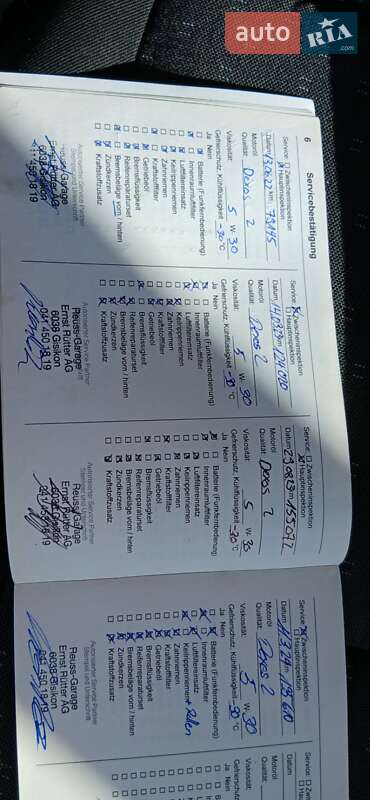 auto RIA.com
6 Servicebestätigung
Service: ☐ Zwischeninspektion
☒ Hauptinspektion
Datum 13.06.22 km: 79145
Motoröl
Qualität: Dexos 2
Viskosität: 5 W- 30
Gefrierschutz, Kühlflüssigkeit -30 °C
Ja Nein
Batterie (Funkfernbedienung)
Innenraumluftfilter
Luftfiltereinsatz
Keilrippenriemen
Zahnriemen
Kraftstofffilter
Getriebeöl
Bremsflüssigkeit
Reifenreparaturset
Bremsbeläge vorn / hinten
Zündkerzen
Kraftstoffzusatz
Autorisierter Service Partner
Stempel und Unterschrift
Reuss-Garage
Ernst Rütter AG
6038 Gisikon
041 450 18 19
Service: ☒ Zwischeninspektion
☐ Hauptinspektion
Motoröl
Qualität: Dexos 2
Viskosität: 5 W- 30
Gefrierschutz, Kühlflüssigkeit -30 °C
Ja Nein
Batterie (Funkfernbedienung)
Innenraumluftfilter
Luftfiltereinsatz
Keilrippenriemen
Zahnriemen
Kraftstofffilter
Getriebeöl
Bremsflüssigkeit
Reifenreparaturset
Bremsbeläge vorn / hinten
Zündkerzen
Kraftstoffzusatz
Autorisierter Service Partner
Reuss-Garage
Ernst Rütter AG
6038 Gisikon
041 450 18 19
Service: ☐ Zwischeninspektion
☒ Hauptinspektion
Motoröl
Qualität: Dexos 2
Viskosität: 5 W-
Gefrierschutz, Kühlflüssigkeit -30 °C
Ja Nein
Batterie (Funkfernbedienung)
Innenraumluftfilter
Luftfiltereinsatz
Keilrippenriemen
Zahnriemen
Kraftstofffilter
Getriebeöl
Bremsflüssigkeit
Reifenreparaturset
Bremsbeläge vorn / hinten
Zündkerzen
Kraftstoffzusatz
Autorisierter Service Partner
Stempel und Unterschrift
Reuss-Garage
Ernst Rütter AG
6038 Gisikon
041 450 18 19
Service: ☒ Zwischeninspektion
☐ Hauptinspektion
Motoröl
Qualität: Dexos 2
Viskosität: 5 W- 30
Gefrierschutz, Kühlflüssigkeit -30 °C
Ja Nein
Batterie (Funkfernbedienung)
Innenraumluftfilter
Luftfiltereinsatz
Keilrippenriemen
Zahnriemen
Kraftstofffilter
Getriebeöl
Bremsflüssigkeit
Reifenreparaturset
Bremsbeläge vorn / hinten
Zündkerzen
Kraftstoffzusatz
Autorisierter Service Partner
Stempel und Unterschrift
Reuss-Garage
Ernst Rütter AG
6038 Gisikon
041 450 18 19
Service:
Datum
Motoröl
Qualität:
Viskosität:
Gefrierschutz,
Ja Nein